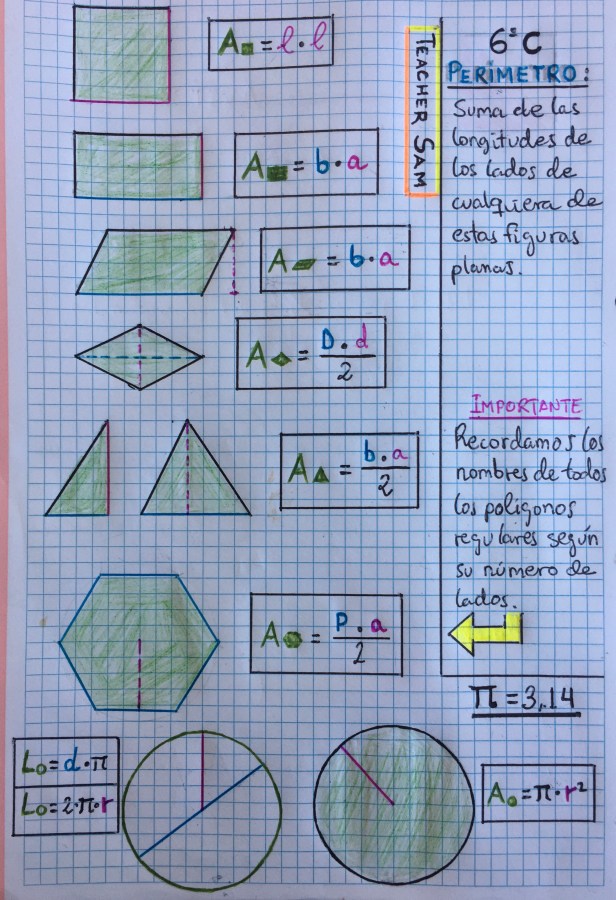 A = l · l
A = b · a
A = b · a
A = D · d / 2
A = b · a / 2
A = P · a / 2
L = d · π
L = 2 · π · r
A = π · r²
TEACHER SAM
6º C
PERÍMETRO:
Suma de las
longitudes de
los lados de
cualquiera de
estas figuras
planas.
IMPORTANTE
Recordamos los
nombres de todos
los polígonos
regulares según
su número de
lados.
π = 3,14